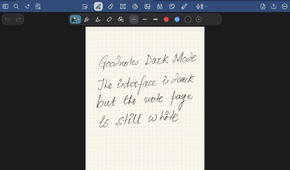 Goodnotes Dark Mode
The interface is dark
but the note page
is still white